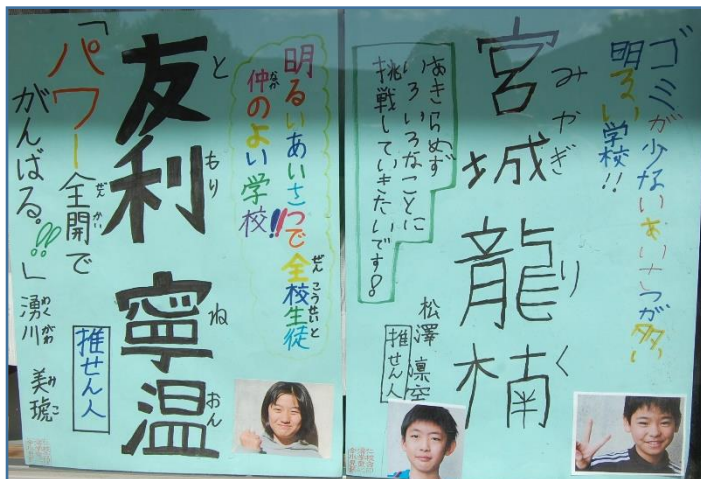 ゴミが少ないあいさつが多い
明るい学校!!
宮城龍楠
みやぎりく
あきらめず
いろいろなことに
挑戦していきたいです!
松澤凛空
推せん人
明るいあいさつで全校生徒
ぜんこうせいと
仲のよい学校!!
なか
友利寧温
ともりねおん
「パワー全開で
ぜんかい
がんばる。!!」
湧川美琥
わくがわみこ
推せん人